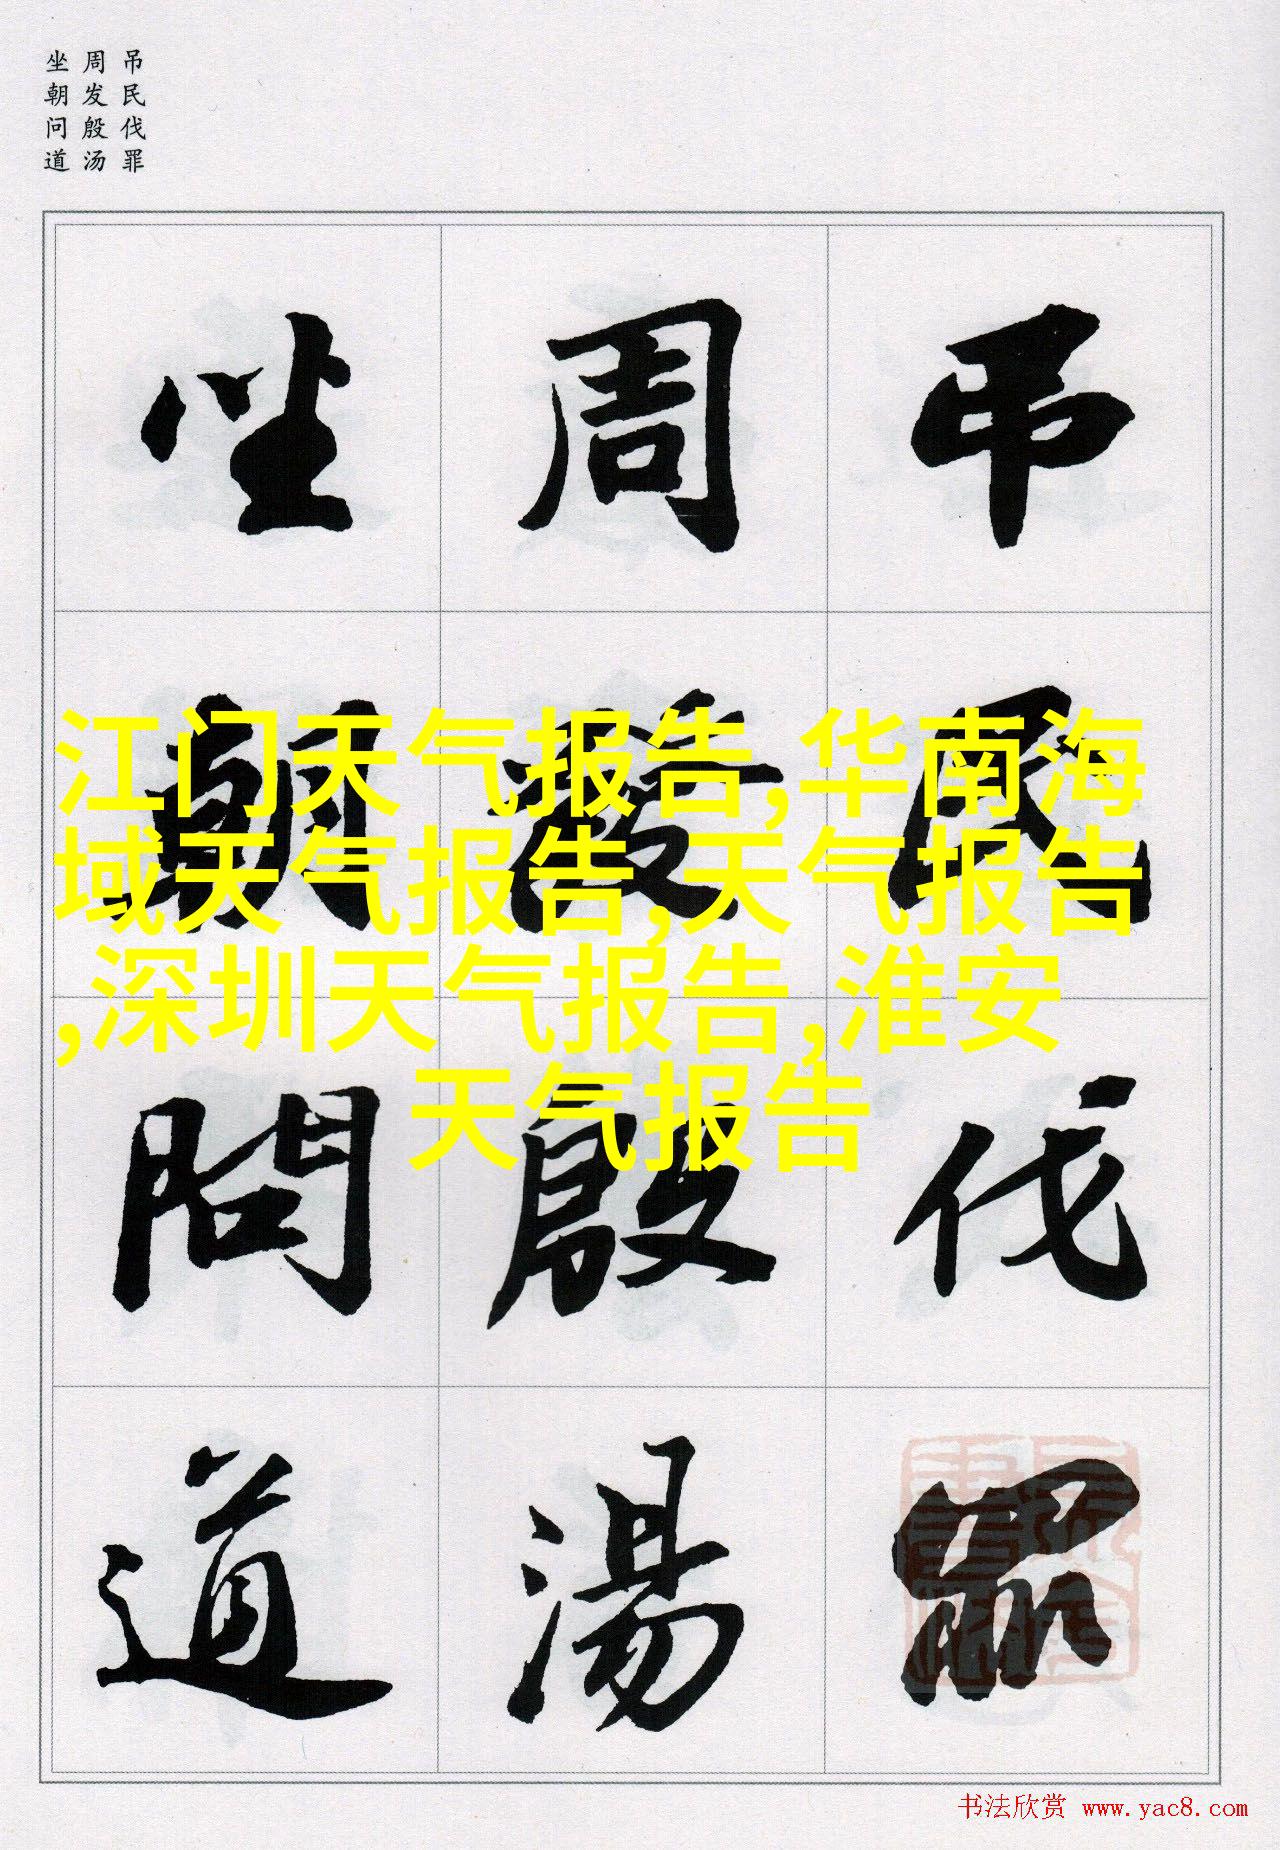 吊民伐罪
周发殷汤
坐朝问道
吊民伐罪
周發殷湯
坐朝問道
江门天气报告,华南海
域天气报告,天气报告
,深圳天气报告,淮安
天气报告
书法欣赏 www.yac8.com